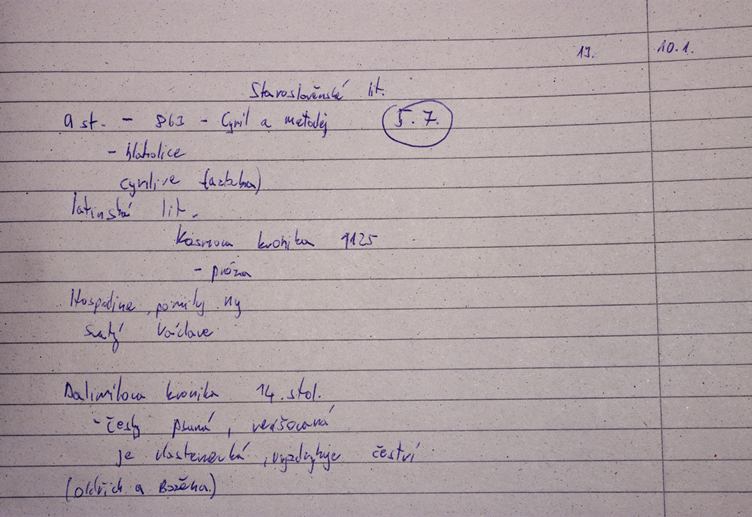 13. 10.1.
Staroslověnské lit.
9 st. - 863 - Cyril a metoděj 5.7.
- hlaholice
cyrilice (azbuka)
latinská lit.
Kosmova kronika 1125
- próza
Hospodine, pomiluj ny
Svatý Václave
Dalimilova kronika 14. stol.
- česky psaná, veršovaná
je vlastenecká, vyzdvyhuje češství
(oldřich a Božena)